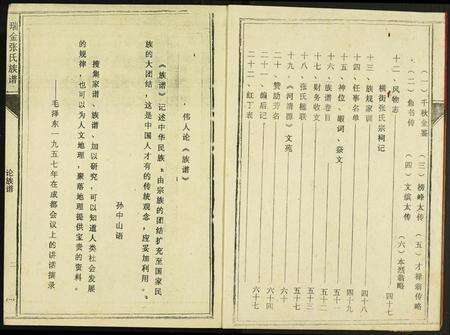 (一)千秋金鉴 (三)榜峰太传 (五)才禄翁传略
(二)曲书传 (四)文缤太传 (六)本烈翁略
十二、风物志 四十七
横街张氏宗祠记
十三、族规家训 四十八
十四、任事名单 四十九
十五、神位、赧词、祭文 五十一
十六、族谱卷目 五十二
十七、财务收支 五十三
十八、张氏楹联 五十五
十九、《河清源》文苑 五十七
二十、赞助芳名 六十四
二十一、编后记 六十六
二十二、红丁表 六十七
瑞金张氏族谱
论族谱
伟人论《族谱》
《族谱》记述中华民族,由宗族的团结扩充至国家民
族的大团结,这是中国人才有的传统观念,应妥加利用。
孙中山语
搜集家谱、族谱,加以研究,可以知道人类社会发展
的规律,也可以为人文地理,聚落地理提供宝贵的资料。
——毛泽东一九五七年在成都会议上的讲话摘录